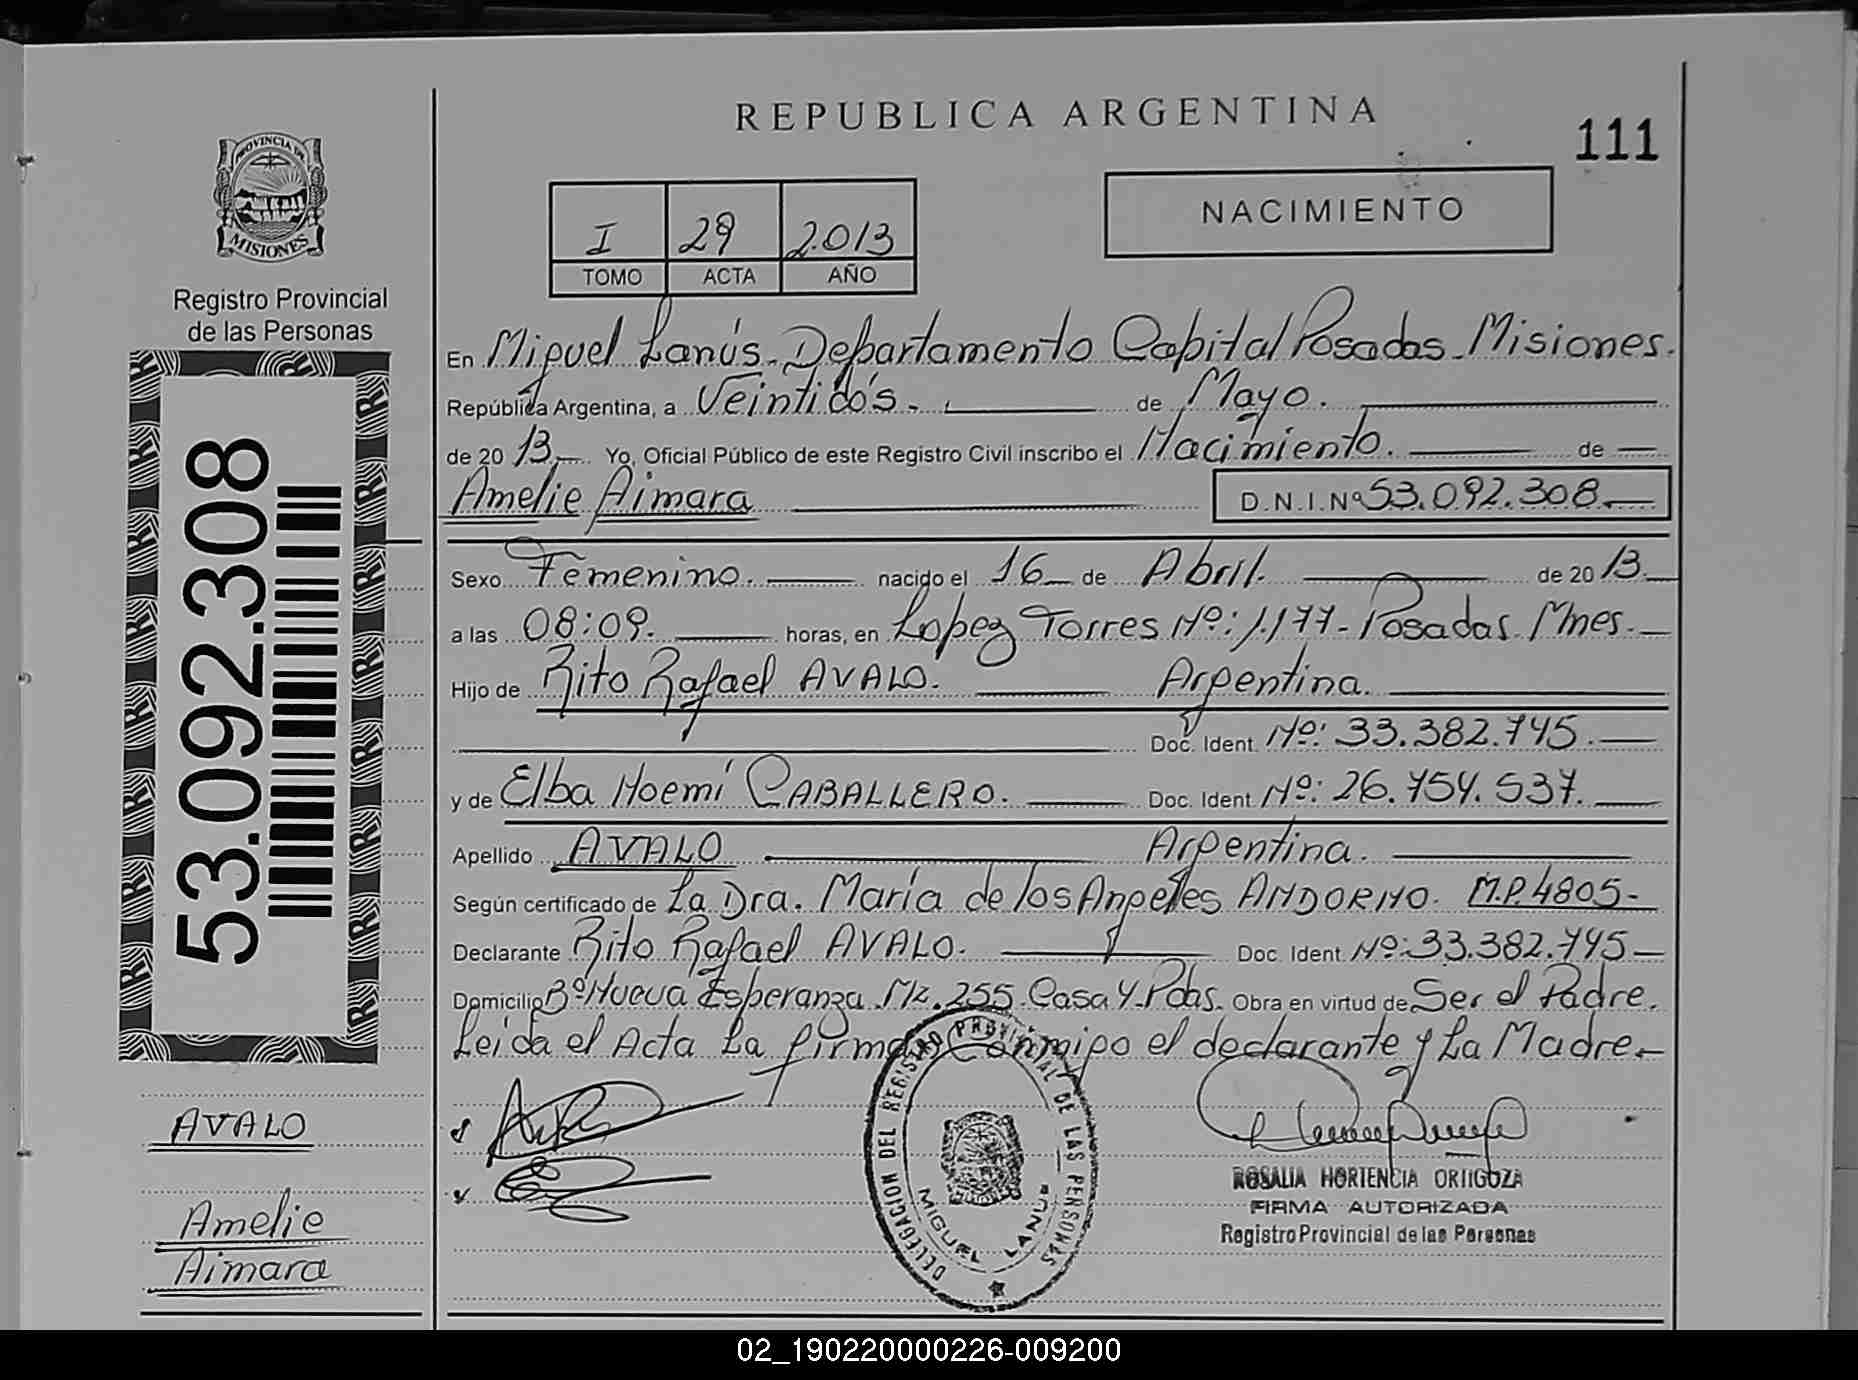 REPUBLICA ARGENTINA
111
PROVINCIA DE
MISIONES
Registro Provincial
de las Personas
53.092.308
I 29 2.013
TOMO ACTA AÑO
NACIMIENTO
En Miguel Lanús. Departamento Capital Posadas. Misiones.
República Argentina, a Veintidós. de Mayo.
de 20 13. Yo, Oficial Público de este Registro Civil inscribo el Nacimiento. de
Amelie Aimara D.N.I.Nº 53.092.308.
Sexo Femenino. nacido el 16 de Abril. de 20 13.
a las 08:09. horas, en Lopez Torres Nº: 1.177- Posadas. Mnes.
Hijo de Rito Rafael AVALO. Argentina.
Doc. Ident. Nº: 33.382.745.
y de Elba Noemí CABALLERO. Doc. Ident. Nº: 26.754.537.
Apellido AVALO Argentina.
Según certificado de La Dra. María de los Angeles ANDORNO. M.P. 4805-
Declarante Rito Rafael AVALO. Doc. Ident. Nº: 33.382.745
Domicilio Bº Nueva Esperanza. Mz. 255. Casa 4. Pdas. Obra en virtud de Ser el Padre.
Leida el Acta La firman Conmigo el declarante y La Madre.
AVALO
Amelie
Aimara
DELEGACION DEL REGISTRO PROVINCIAL DE LAS PERSONAS
MIGUEL LANUS
ROSALIA HORTENCIA ORTIGOZA
FIRMA AUTORIZADA
Registro Provincial de las Personas
02_190220000226-009200